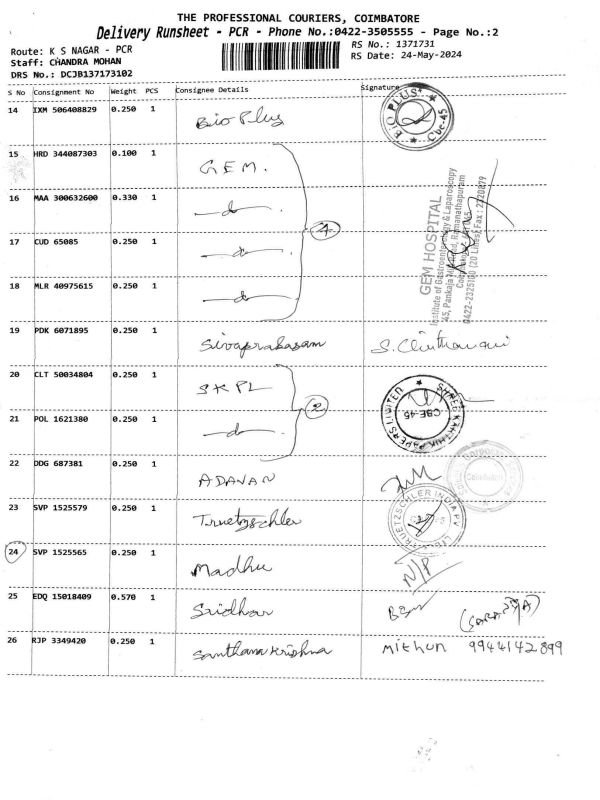 THE PROFESSIONAL COURIERS, COIMBATORE
Delivery Runsheet - PCR - Phone No.:0422-3505555 - Page No.:2
Route: K S NAGAR - PCR
RS No.: 1371731
Staff: CHANDRA MOHAN
RS Date: 24-May-2024
DRS No.: DCJB137173102
S No Consignment No Weight PCS Consignee Details Signature
14 IXM 506408829 0.250 1 Bio Plus
BIO PLUS Cbe-45
15 HRD 344087303 0.100 1 G.E.M.
16 MAA 300632600 0.330 1 - do - .
4
17 CUD 65085 0.250 1 - do - .
18 MLR 40975615 0.250 1 - do - .
GEM HOSPITAL
Institute of Gastroenterology & Laparoscopy
45, Pankaja Mill Road, Ramanathapuram
0422-2325100 (20 Lines) Fax : 2320879
19 PDK 6071895 0.250 1 Sivaprakasam
20 CLT 50034804 0.250 1 SKPL
2
SHREE KARTHIK PAPERS LIMITED CBE-45
21 POL 1621380 0.250 1 - do -
22 DDG 687381 0.250 1 ADAVAN
Coimbatore
23 SVP 1525579 0.250 1 Truetzschler
TRUETZSCHLER INDIA PV
24 SVP 1525565 0.250 1 Madhu N/P
25 EDQ 15018409 0.570 1 Sridhar
26 RJP 3349420 0.250 1 Santhana Krishna Mithun 9944142899